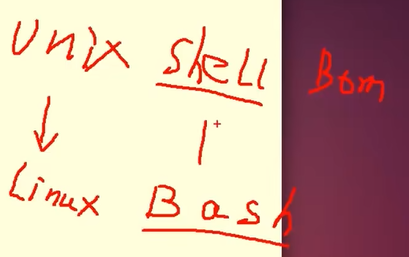 Unix Shell
Linux Bash